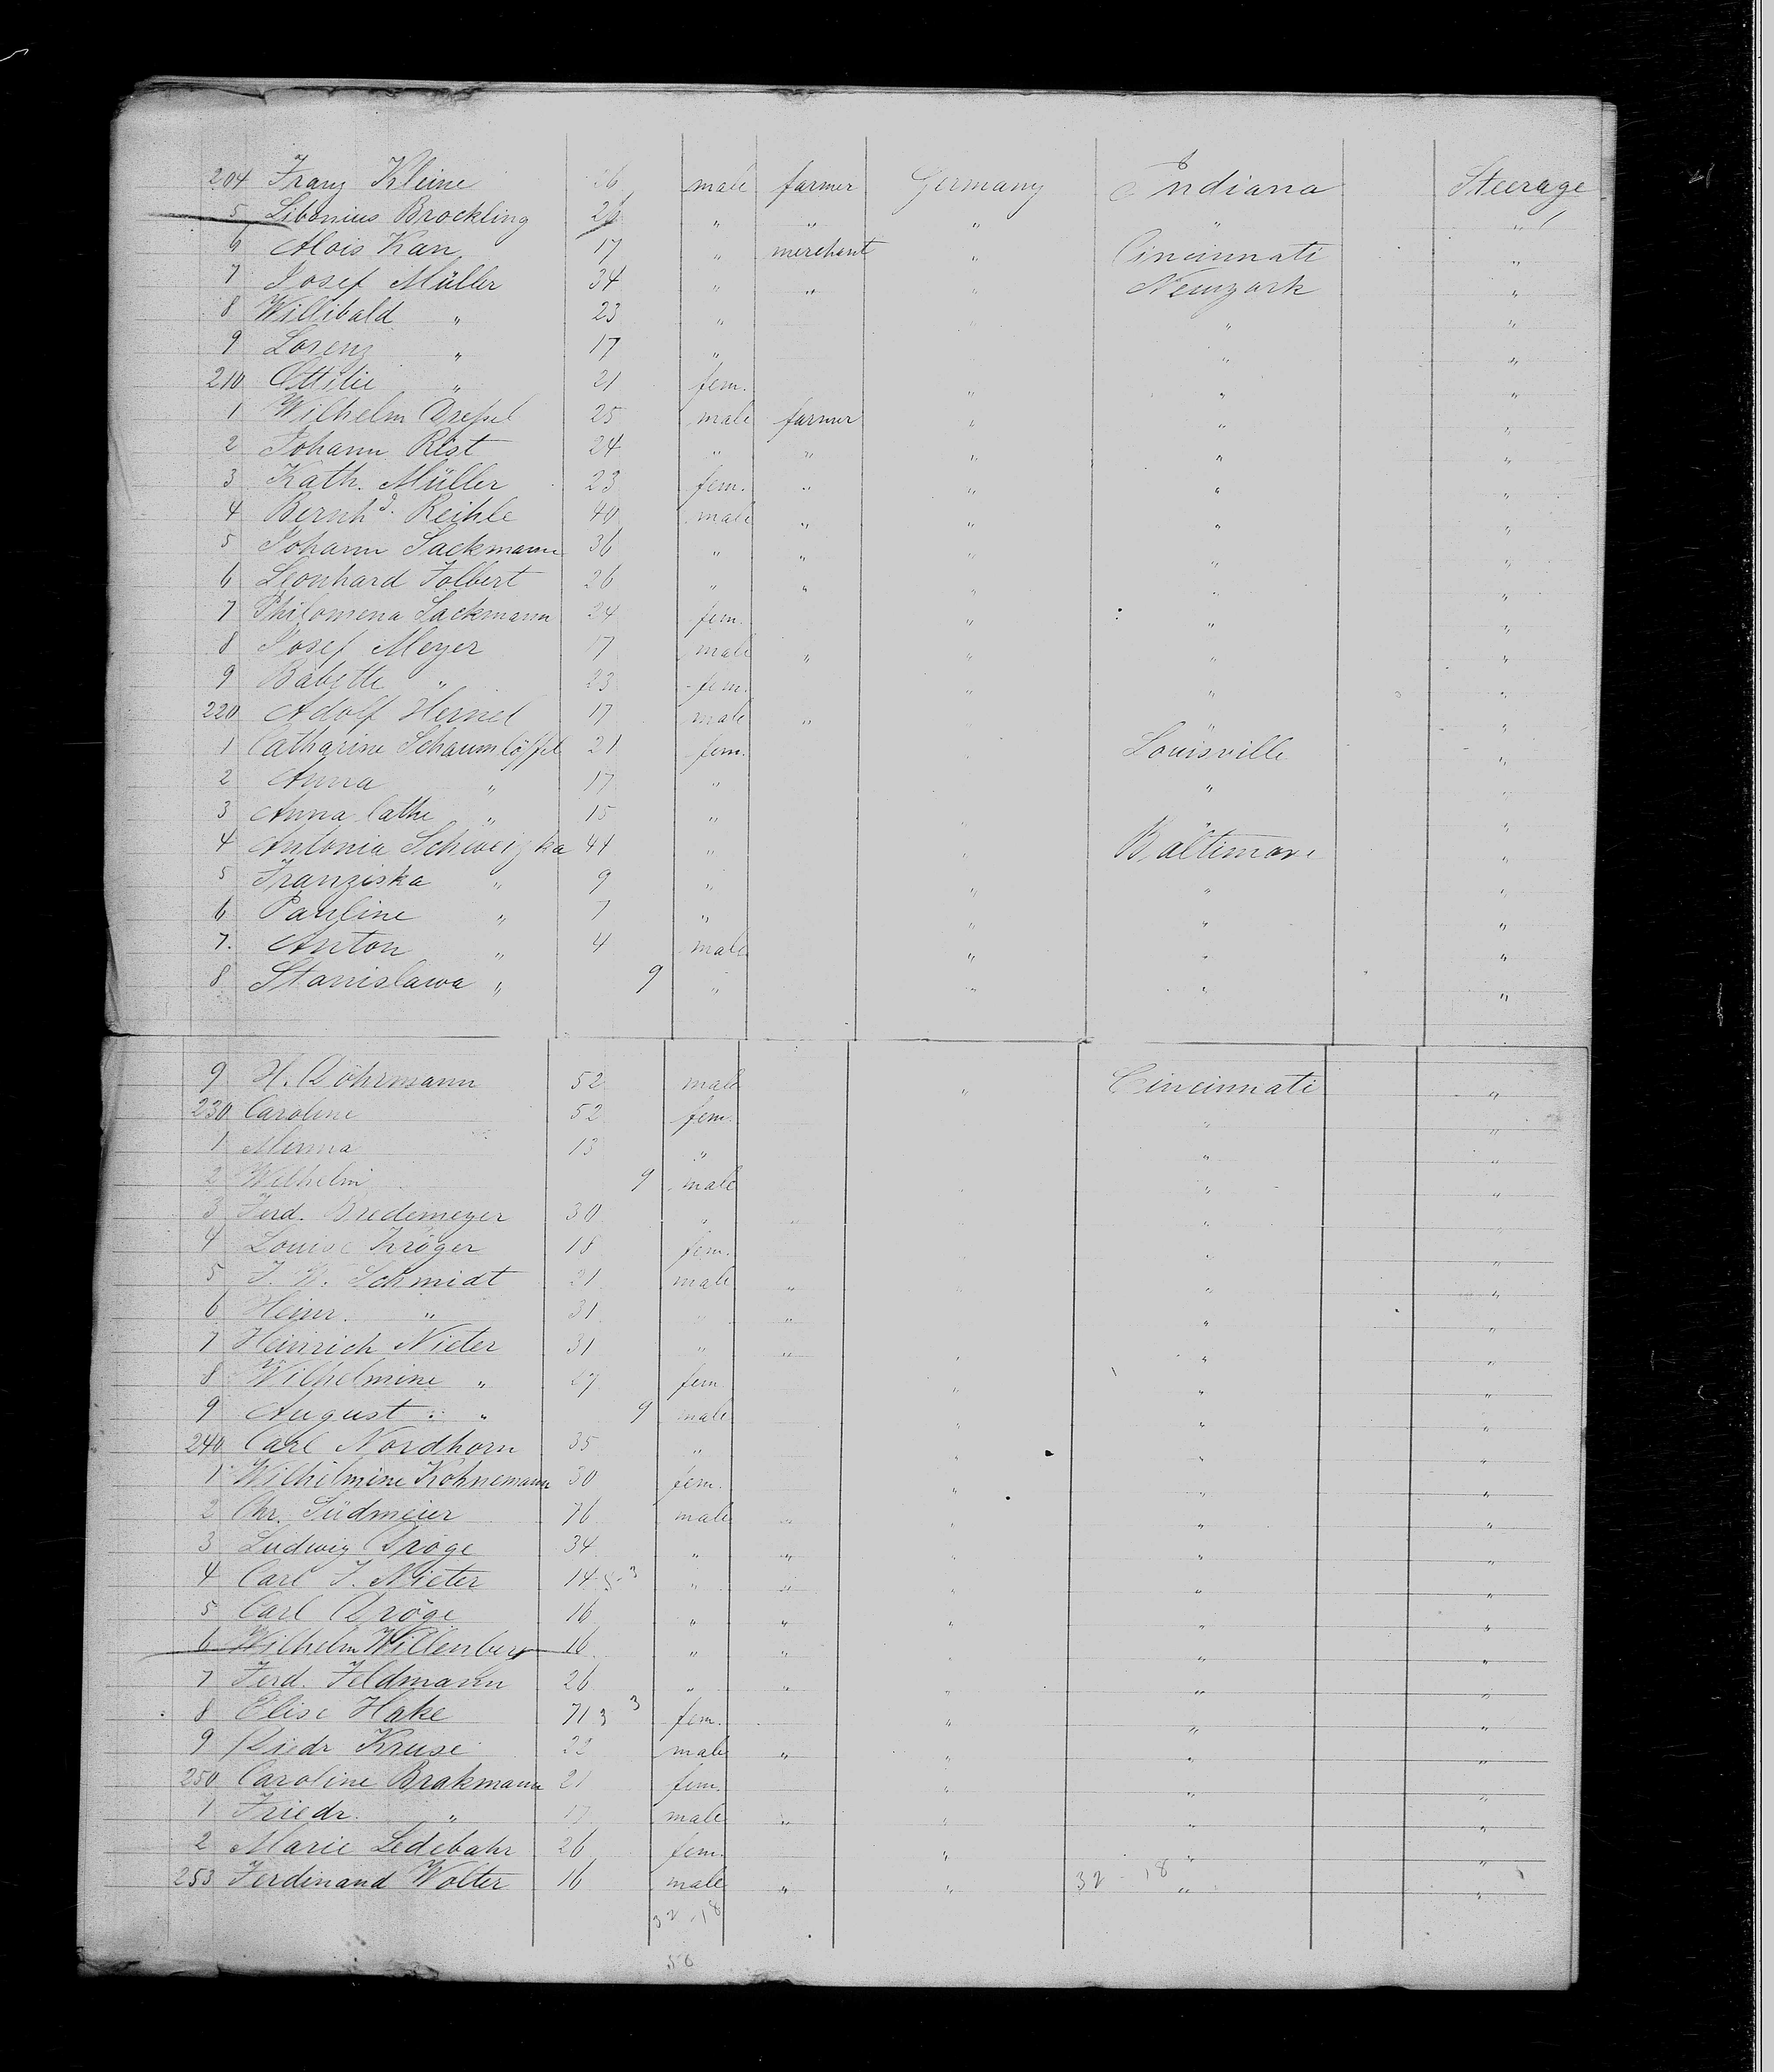 204 Franz Kleine 26 male farmer Germany Indiana Steerage
5 Libonius Brockling 26 " " " " "
6 Alois Kan 17 " merchant " Cincinnati "
7 Josef Müller 34 " " " Newyork "
8 Willibald " 23 " " " "
9 Lorenz " 17 " " "
210 Ottilie " 21 fem. " " "
1 Wilhelm Dressel 25 male farmer " " "
2 Johann Rist 24 " " " " "
3 Kath. Müller 23 fem. " " " "
4 Bernhd. Reihle 40 male " " " "
5 Johann Sackmann 36 " " " " "
6 Leonhard Folbert 26 " " " " "
7 Philomena Sackmann 24 fem. " " "
8 Josef Meyer 17 male " " " "
9 Babette " 23 fem. " " "
220 Adolf Hernel 17 male " " "
1 Catharine Schaumlöffel 21 fem. " Louisville "
2 Anna " 17 " " "
3 Anna Cathe " 15 " " " "
4 Antonia 44 " " Baltimore "
5 Franziska " 9 " " " "
6 Pauline " 7 " " " "
7. Anton " 4 male " " "
8 Stanislawa " 9 " " " "
9 H. Döhrmann 52 male " Cincinnati "
230 Caroline 52 fem. " "
1 Minna 13 " " "
2 Wilhelm 9 male " " "
3 Ferd. Bredemeyer 30 " " " " "
4 Louise Kröger 18 fem. " "
5 F. W. Schmidt 21 male " " "
6 Heinr. " 31 " " " "
7 Heinrich Nieter 31 " " " " "
8 Wilhelmine " 27 fem " " "
9 August " 9 male " " "
240 Carl Nordhorn 35 " " " "
1 Wilhelmine Kohnemann 30 fem. " " "
2 Chr. Südmeier 76 male " " " "
3 Ludwig Dröge 34 " " " " "
4 Carl F. Nieter 14 " " " " "
5 Carl Dröge 16 " " " " "
6 Wilhelm Willenburg 16 " " " " "
7 Ferd. Feldmann 26 " " " " "
8 Elise Hake 71 3 3 fem. " " "
9 Diedr Kruse 22 male " " " "
250 Caroline Brakmann 21 fem. " " "
1 Friedr. " 17 male " " " "
2 Marie Ledebahr 26 fem. " " "
253 Ferdinand Wolter 16 male " " 32 - 18 " "
32 - 18